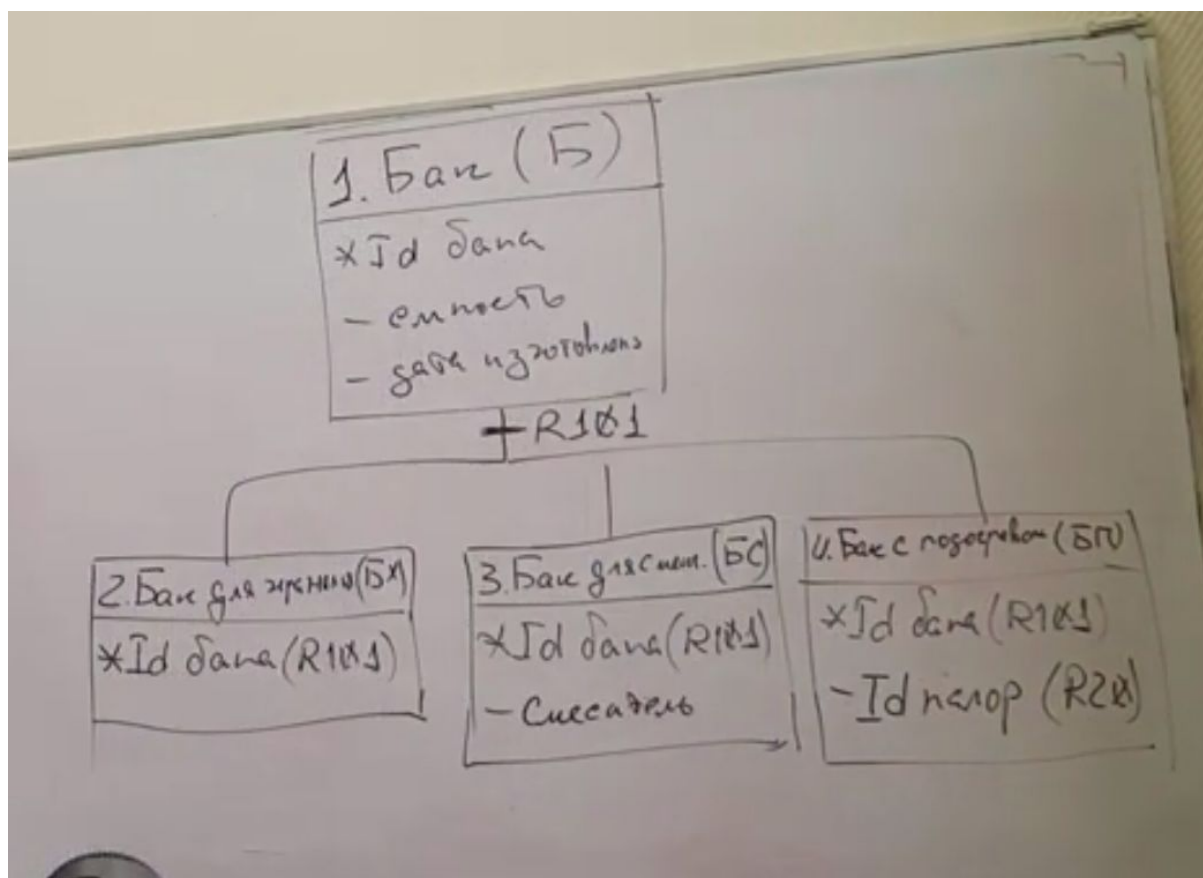 1. Бак (Б)
*Id бака
- емкость
- дата изготовлен
R101
2. Бак для хранения (БХ)
*Id бака (R101)
3. Бак для смеш. (БС)
*Id бака (R101)
- Смеситель
4. Бак с подогревом (БП)
*Id бака (R101)
- Id калор (R20)